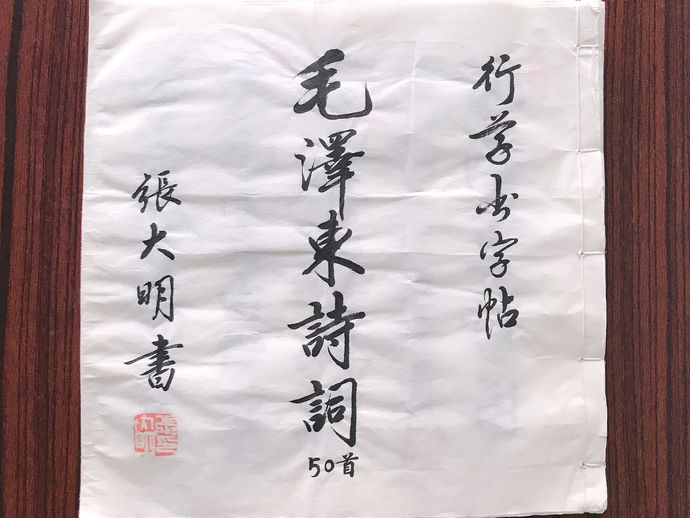 行草书字帖
毛澤東詩詞
50首
張大明書